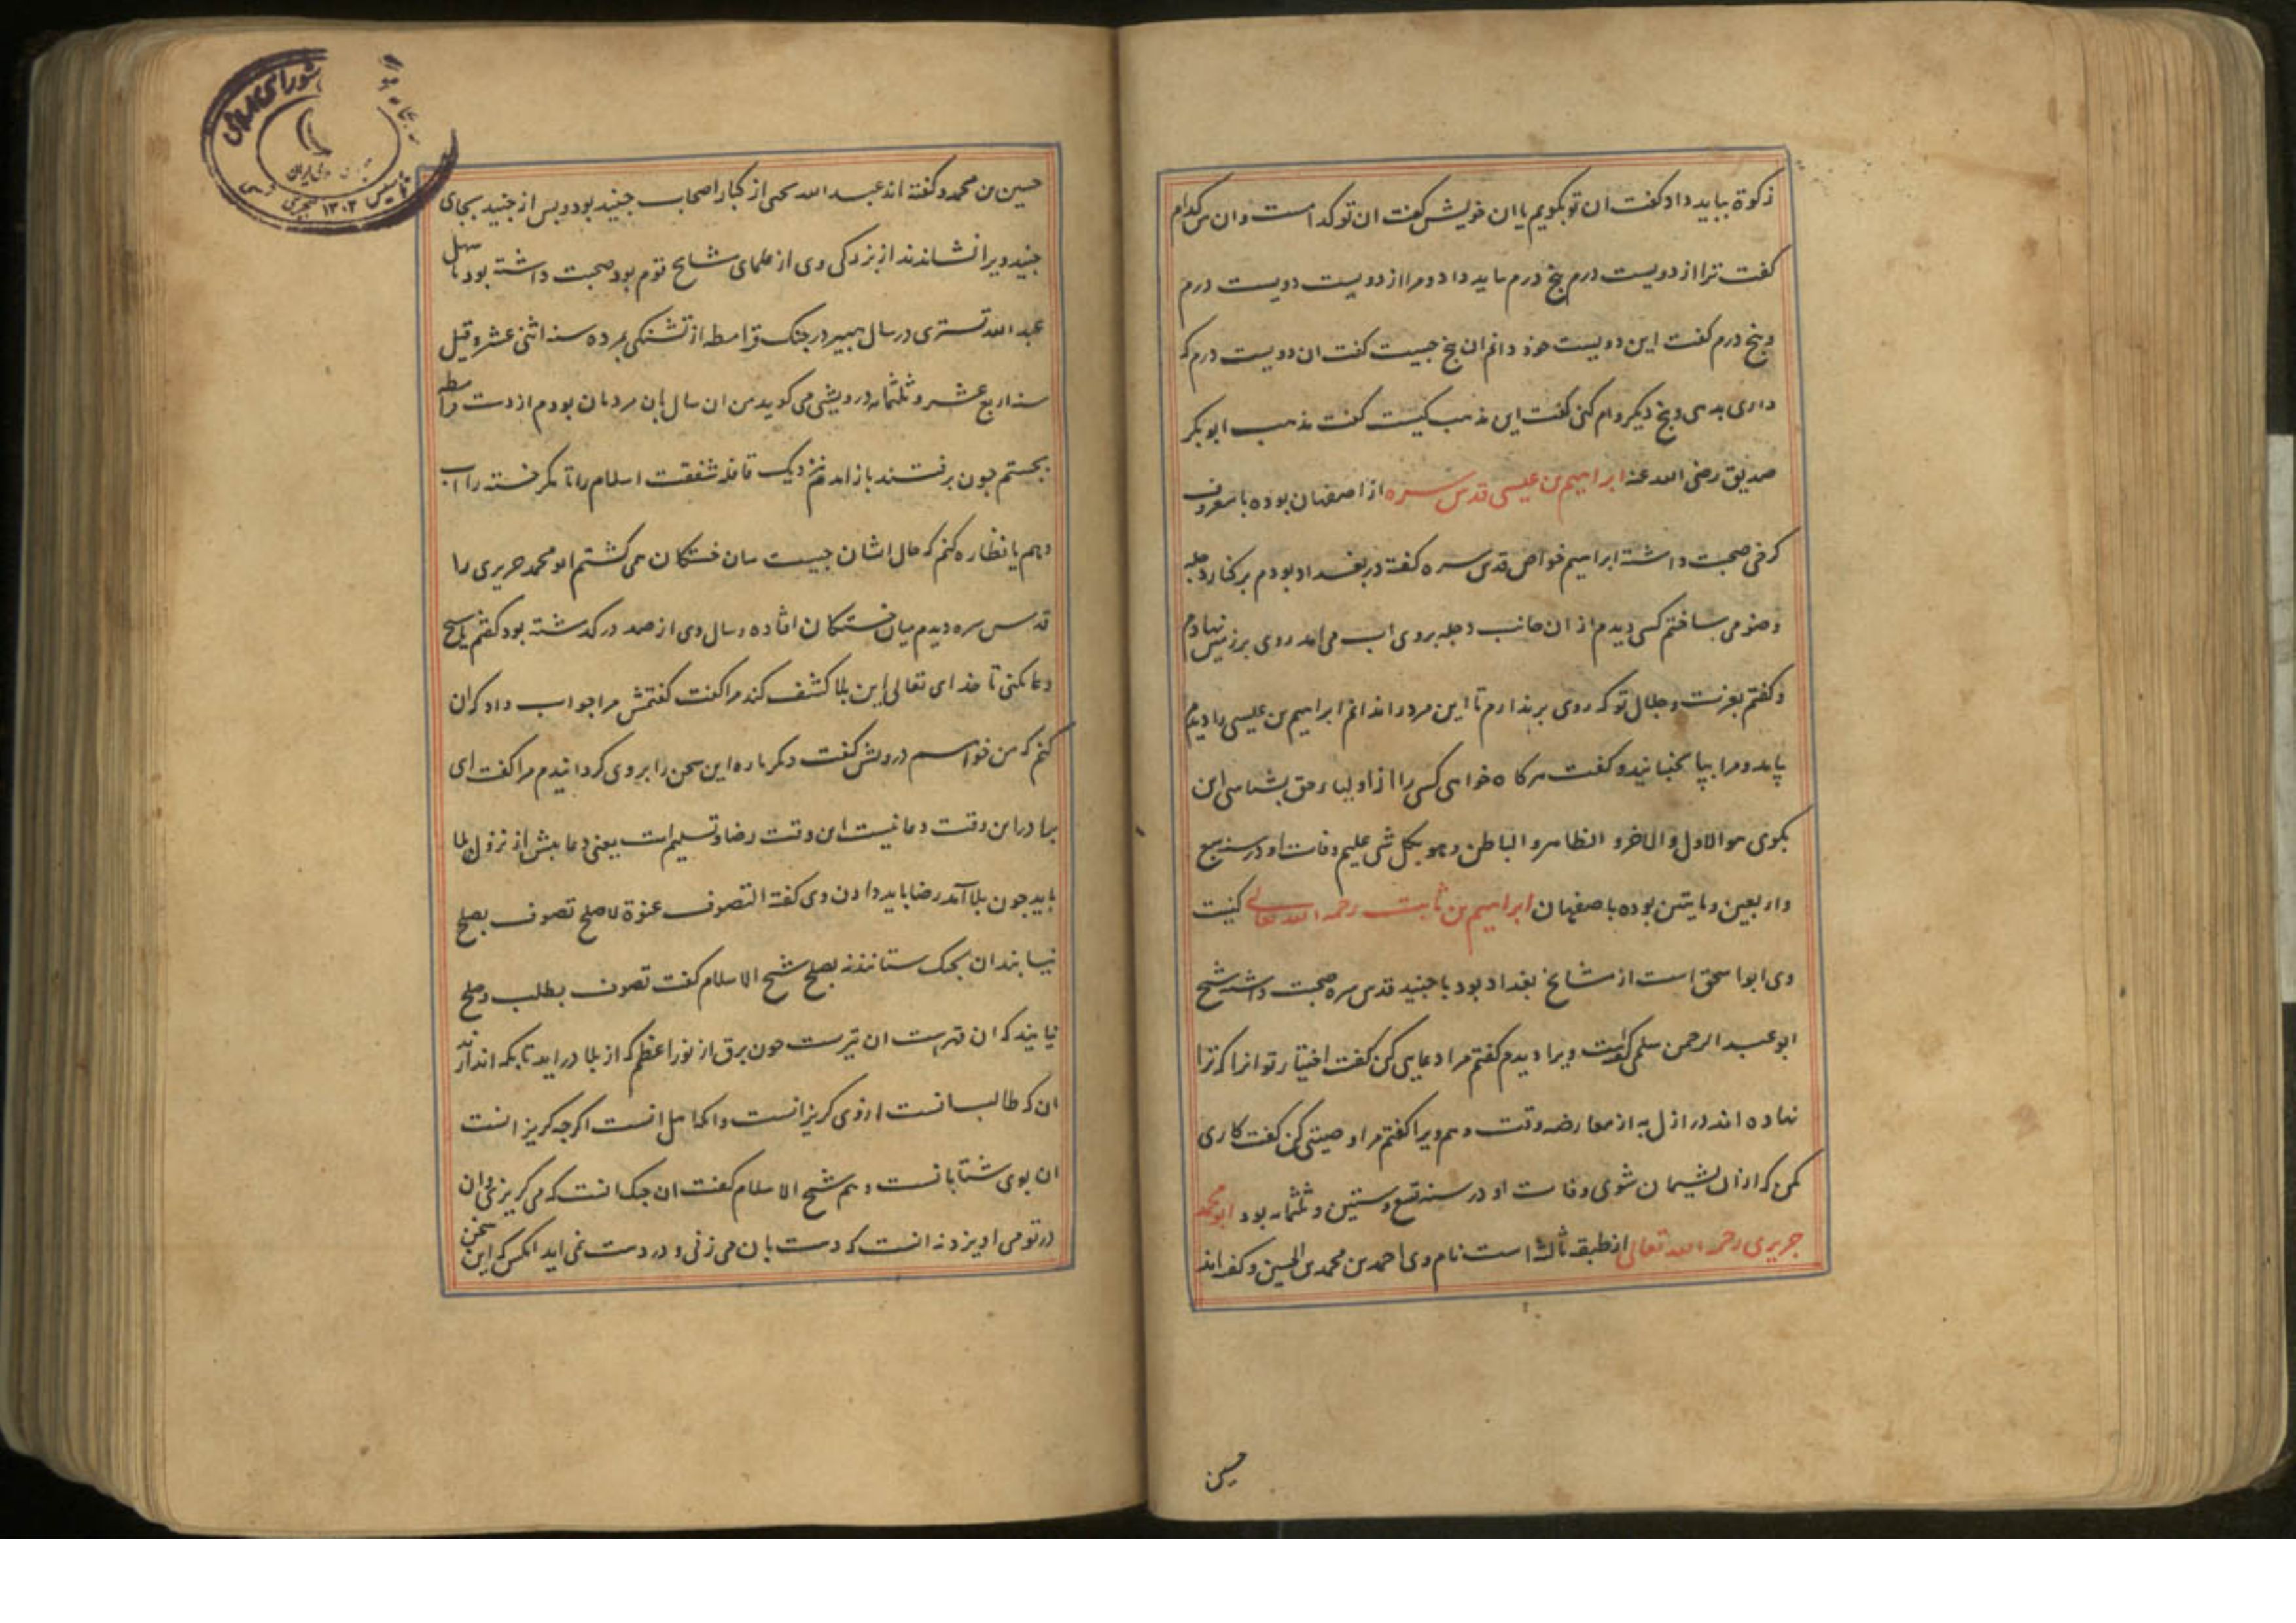 زکوة بباید داد کفت ان تو بکویم یا ان خویش کفت ان تو کدامست و ان من کدام
کفت ترا از دویست درم پنج درم باید داد و مرا از دویست دویست درم
و پنج درم کفت این دویست خود دانم ان پنج جیست کفت ان دویست درم که
داری بدهی و پنج دیکر وام کنی کفت این مذهب کیست کفت مذهب ابو بکر
صدیق رضی الله عنه ابراهیم بن عیسی قدس سره از اصفهان بوده با معروف
کرخی صحبت داشته ابراهیم خواص قدس سره کفته در بغداد بودم بر کنار دجله
وضو می ساختم کسی دیدم از ان جانب دجله بروی اب می امد روی بر زمین نهادم
و کفتم بعزت و جلال تو که روی برندارم تا این مرد را ندانم ابراهیم بن عیسی را دیدم
بامد و مرا بپا بجنبانید و کفت هرکاه خواهی کسی را از اولیاء حق بشناسی این
بکوی هو الاول والاخر و الظاهر و الباطن و هو بکل شی علیم وفات او در سنه سبع
و اربعین و مایتین بوده باصفهان ابراهیم بن ثابت رحمه الله تعالی کنیت
وی ابو اسحق است از مشایخ بغداد بود با جنید قدس سره صحبت داشته شیخ
ابو عبد الرحمن سلمی کفته است ویرا دیدم کفتم مرا دعایی کن کفت اختیار تو انرا که ترا
نهاده اند در ازل به از معارضه وقت و هم ویرا کفتم مرا وصیتی کن کفت کاری
مکن که از ان پشیمان شوی وفات او در سنه تسع و ستین و ثلثمایه بود ابو محمد
جریری رحمه الله تعالی از طبقه ثالثه است نام وی احمد بن محمد بن الحسین و کفته اند
حسین
حسین بن محمد و کفته اند عبد الله یحیی از کبار اصحاب جنید بود و پس از جنید بجای
جنید ویرا نشاندند از بزرکی وی از علمای مشایخ قوم بود صحبت داشته بود با سهل
عبد الله تستری در سال هبیر در جنک قرامطه از تشنکی بمرده سنه اثنی عشر و قیل
سنه اربع عشر و ثلثمایه درویشی می کوید من ان سال بان مردمان بودم از دست قرامطه
بجستم جون برفتند باز امدم نزدیک قافله شفقت اسلام را تا مکر خسته را اب
دهم یا نظاره کنم که حال ایشان جیست میان خستکان می کشتم ابو محمد جریری را
قدس سره دیدم میان خستکان افتاده و سال وی از صد در کذشته بود کفتم یا شیخ
دعا نکنی تا خدای تعالی این بلا کشف کند مرا کفت کفتمش مرا جواب داد که ان
کنم که من خواهم درویش کفت دیکر باره این سخن را بروی کردانیدم مرا کفت ای
برادر این وقت دعا نیست این وقت رضا و تسلیم است یعنی دعا پیش از نزول بلا
باید جون بلا آمد رضا باید دادن وی کفته التصوف عنوة لا صلح تصوف بصلح
نیابند ان بجنک ستانند نه بصلح شیخ الاسلام کفت تصوف بطلب و صلح
نیابند که ان قهرست ان تیرست جون برق از نور اعظم که از بلا در اید تا بکه اندازند
ان که طالب انست ارزوی کریزانست و انکه اهل انست اکرجه کریزانست
ان بوی شتابانست و هم شیخ الاسلام کفت ان جنک انست که می کریزی و ان
در تو می اویزد نه انست که دست بان می زنی و در دست نمی اید انکس که این سخن